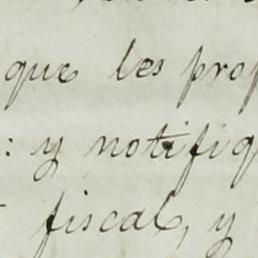 que les prop
: y notifiq
fiscal, y